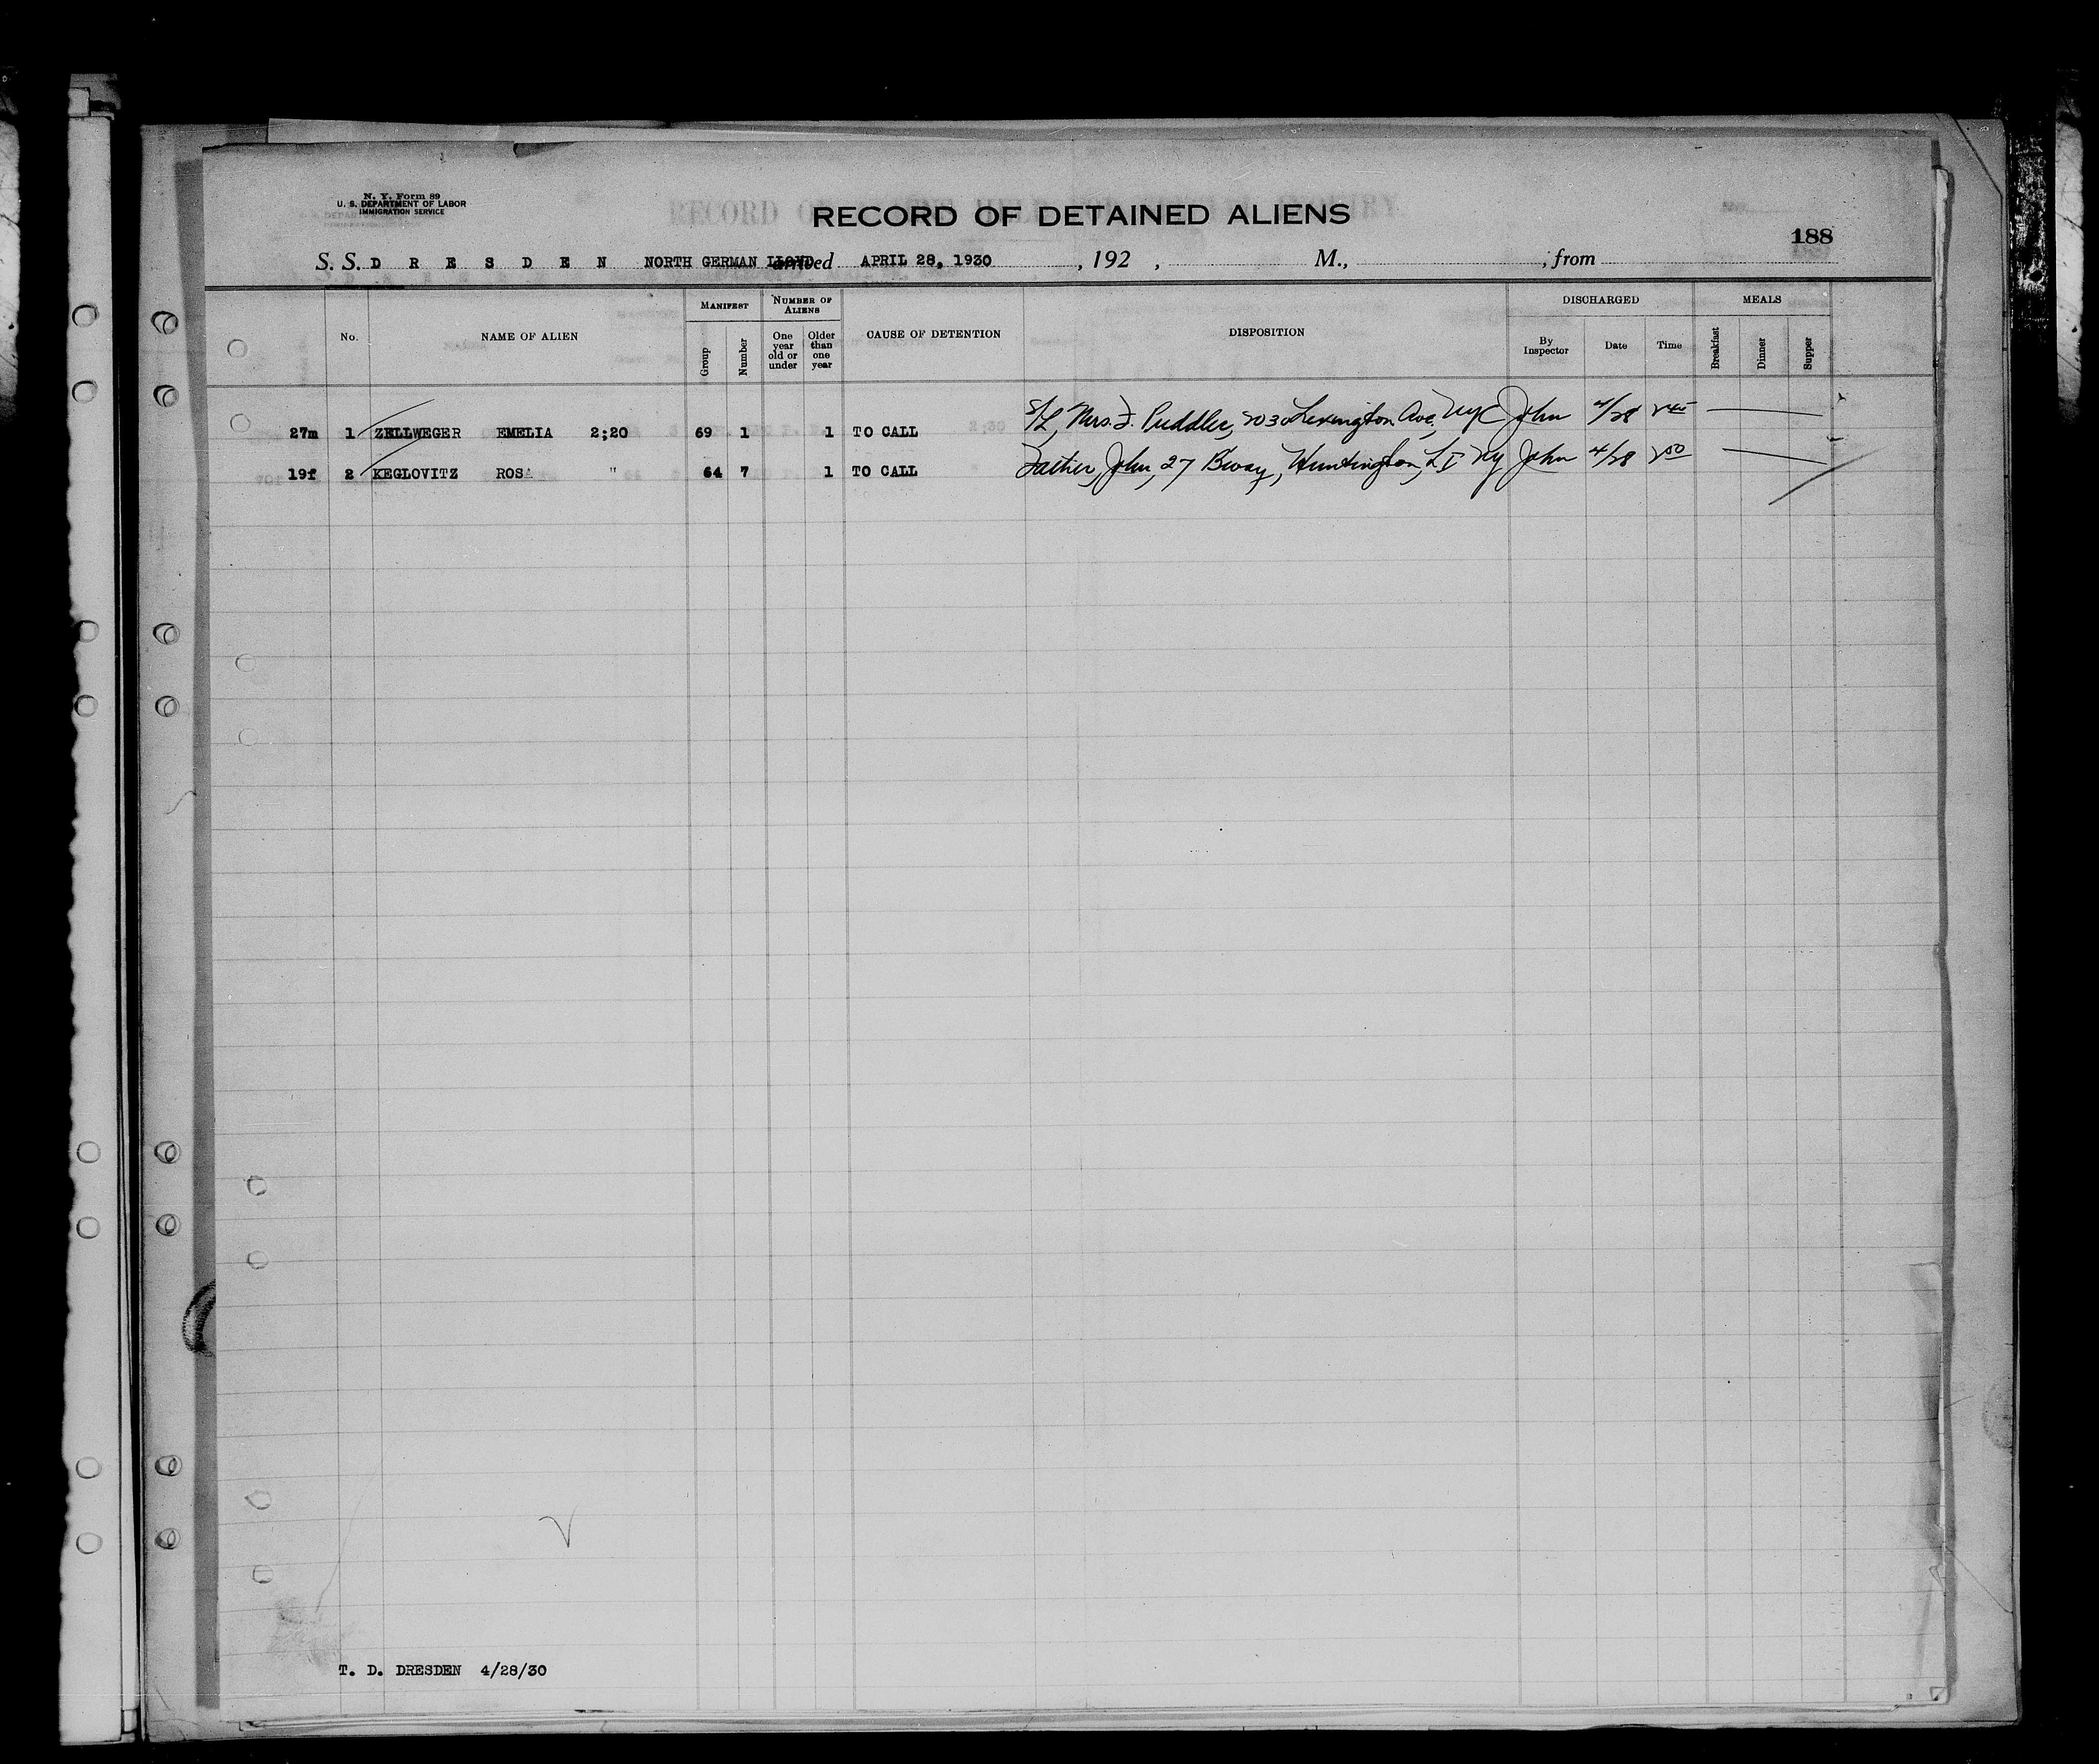 N. Y. Form 89
U. S. DEPARTMENT OF LABOR
IMMIGRATION SERVICE
RECORD OF DETAINED ALIENS
188
S. S. D R E S D E N NORTH GERMAN LLOYD arrived APRIL 28, 1930 , 192 , M., ; from
No. NAME OF ALIEN MANIFEST Group Number NUMBER OF ALIENS One year old or under Older than one year CAUSE OF DETENTION DISPOSITION DISCHARGED By Inspector Date Time MEALS Breakfast Dinner Supper
27m 1 ZELLWEGER EMELIA 2;20 69 1 1 TO CALL S/L, Mrs. F. Puddler, 2030 Lexington Ave., NYC John 4/28
19f 2 KEGLOVITZ ROSA " 64 7 1 TO CALL Father, John, 27 Bway, Huntington, L I NY John 4/28 2 00
T. D. DRESDEN 4/28/30